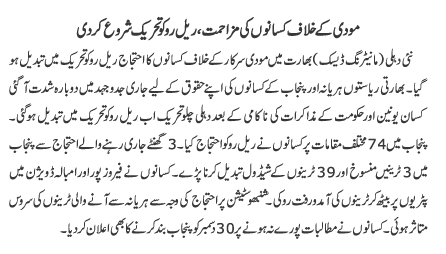 مودی کے خلاف کسانوں کی مزاحمت، ریل روکو تحریک شروع کر دی
نئی دہلی (مانیٹرنگ ڈیسک) بھارت میں مودی سرکار کے خلاف کسانوں کا احتجاج ریل روکو تحریک میں تبدیل ہو
گیا۔ بھارتی ریاستوں ہریانہ اور پنجاب کے کسانوں کی اپنے حقوق کے لیے جاری جدوجہد میں دوبارہ شدت آ گئی
کسان یونین اور حکومت کے مذاکرات کی ناکامی کے بعد دہلی چلو تحریک اب ریل روکو تحریک میں تبدیل ہوگئی۔
پنجاب میں 74 مختلف مقامات پر کسانوں نے ریل روکو احتجاج کیا۔ 3 گھنٹے جاری رہنے والے احتجاج سے پنجاب
میں 3 ٹرینیں منسوخ اور 39 ٹرینوں کے شیڈول تبدیل کرنا پڑے۔ کسانوں نے فیروز پور اور امبالہ ڈویژن میں
پٹریوں پر بیٹھ کر ٹرینوں کی آمدورفت روکی۔ شنبھو سٹیشن پر احتجاج کی وجہ سے ہریانہ سے آنے والی ٹرینوں کی سروس
متاثر ہوئی۔ کسانوں نے مطالبات پورے نہ ہونے پر 30 دسمبر کو پنجاب بند کرنے کا بھی اعلان کر دیا۔